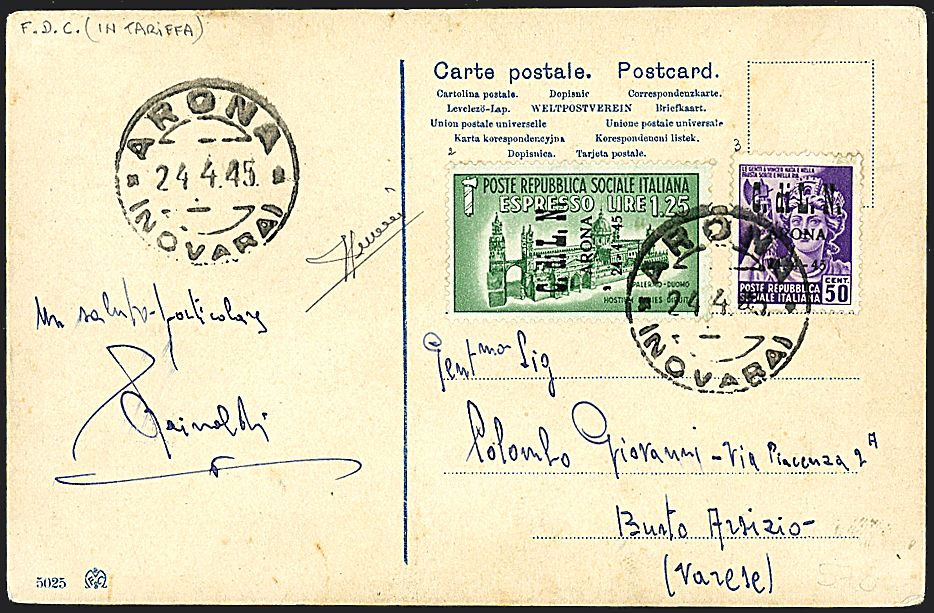 F.D.C. (IN TARIFFA)
ARONA
24 4.45.
(NOVARA)
Un saluto particolare
Rainoldi
5025
Carte postale. Postcard.
Cartolina postale. Dopisnic Correspondenzkarte.
Levelező-Lap. WELTPOSTVEREIN Briefkaart.
Union postale universelle Unione postale universale
Karta korespondencyjna Korespondencni listek.
Dopisnica. Tarjeta postale.
2
3
POSTE REPUBBLICA SOCIALE ITALIANA
ESPRESSO LIRE 1,25
C. di L. N.
ARONA
PALERMO-DUOMO
C. di L. N.
ARONA
POSTE REPUBBLICA
SOCIALE ITALIANA
CENT.
50
ARONA
24.4.45
(NOVARA)
Gent.mo Sig
Colombo Giovanni - Via Piacenza 2A
Busto Arsizio -
(Varese)